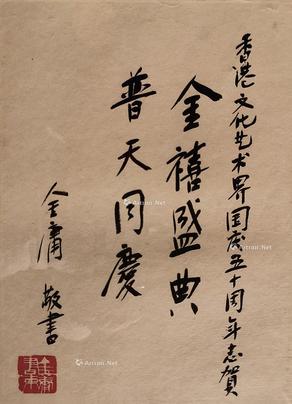 香港文化艺术界国庆五十周年志賀
金禧盛典
普天同慶
金庸 敬書
Artron.Net
Artron.Net
Artron.Net
Artron.Net